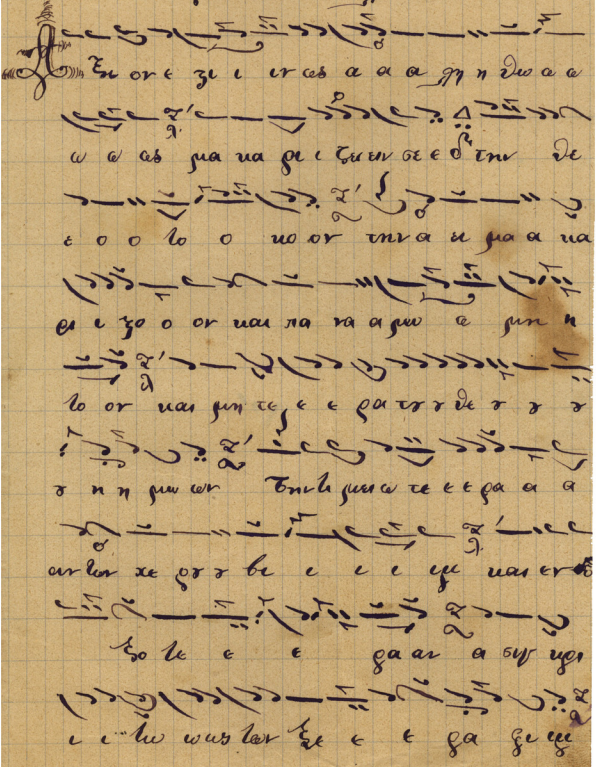 Α ξι ον ε ϛι ι ιν ως α α α λη η θω ω ω
ω ω ως μα κα ρι ι ζειειν σε ε την θε
ε ο ο το ο κο ον την α ει μα α κα
ρι ι ϛο ο ον και πα να α μω ω μη η
το ον και μη τε ε ε ρα τȣ ȣ θε ȣ ȣ ȣ
ȣ η η μω ων Την τι μιω τε ε ε ρα α α
αν των χε ρȣ ȣ βι ι ι ι ιμ και εν δο
ξο τε ε ε ρα αν α συγ κρι
ι ι τω ως των Σε ε ε ρα φι ιμ